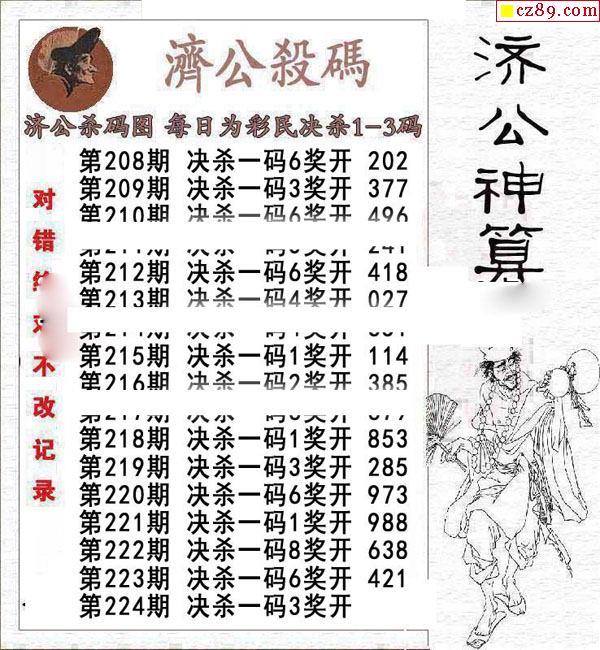 cz89.com
濟公殺碼
济公杀码图 每日为彩民决杀1-3码
第208期 决杀一码6奖开 202
第209期 决杀一码3奖开 377
第210期 决杀一码6奖开 496
第212期 决杀一码6奖开 418
第213期 决杀一码4奖开 027
第215期 决杀一码1奖开 114
第216期 决杀一码2奖开 385
第218期 决杀一码1奖开 853
第219期 决杀一码3奖开 285
第220期 决杀一码6奖开 973
第221期 决杀一码1奖开 988
第222期 决杀一码8奖开 638
第223期 决杀一码6奖开 421
第224期 决杀一码3奖开
对错 不改记录
济公神算